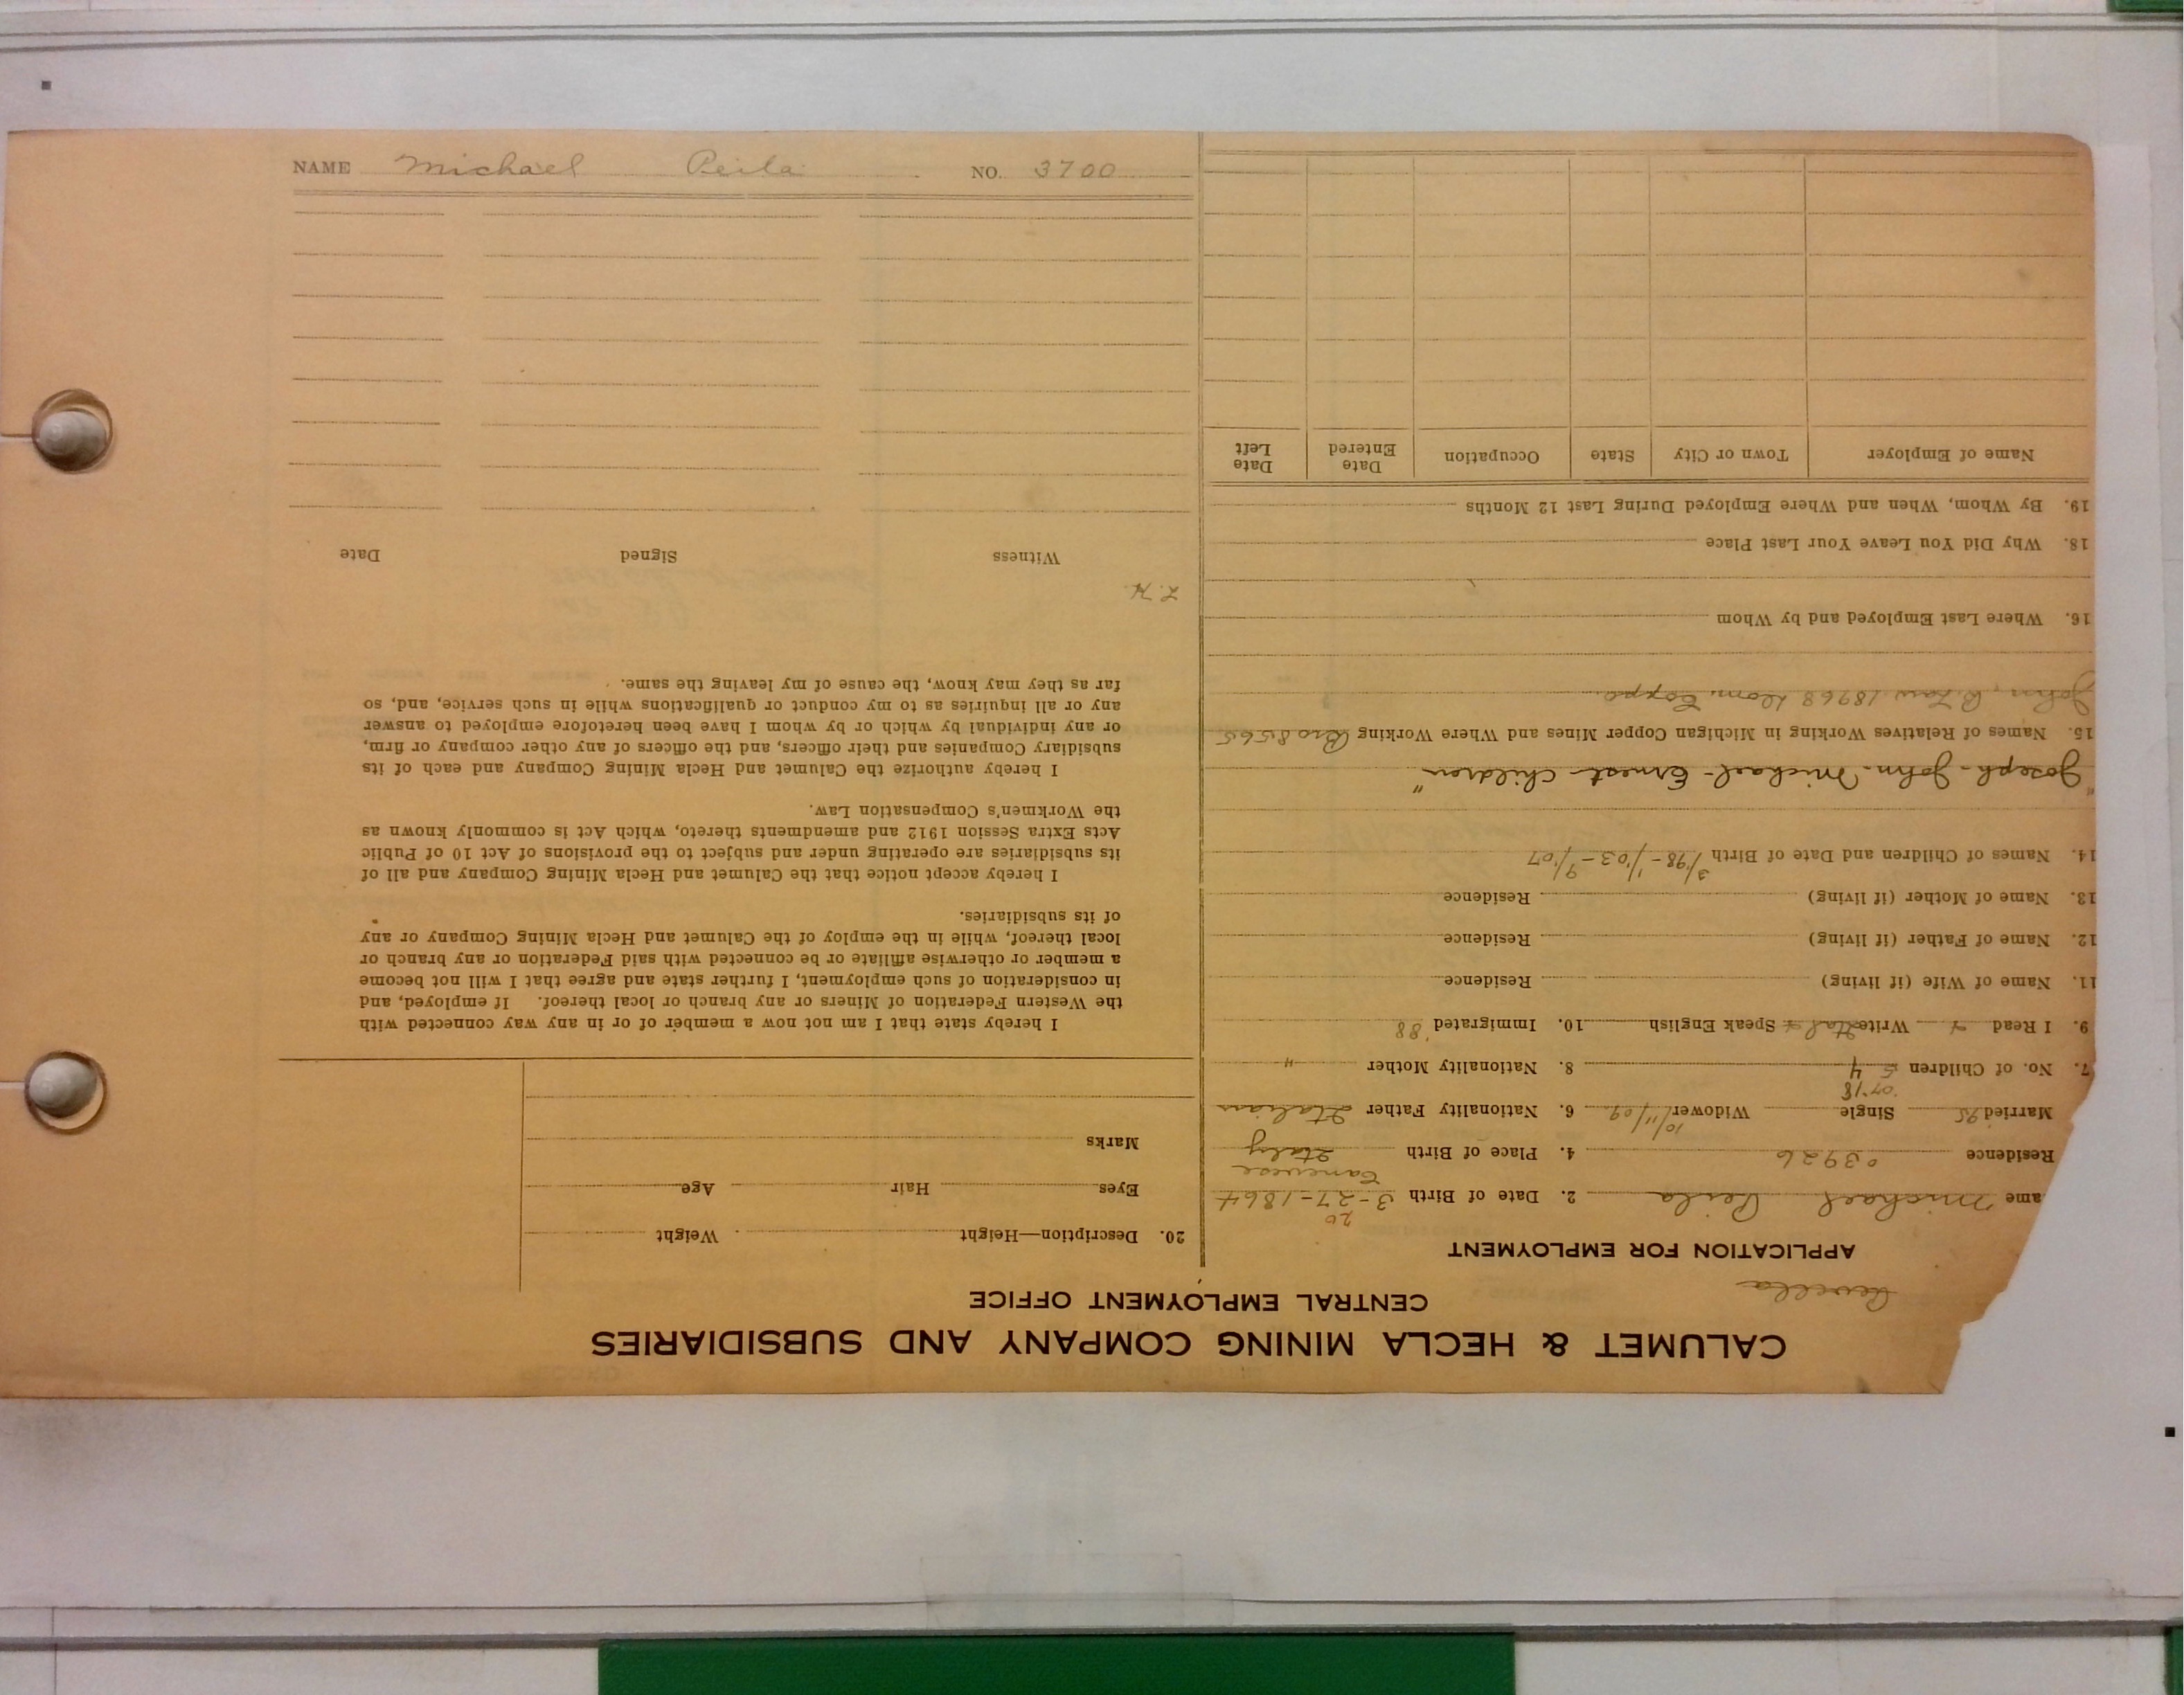 NAME Michael Peila NO. 3700
CALUMET & HECLA MINING COMPANY AND SUBSIDIARIES
CENTRAL EMPLOYMENT OFFICE
APPLICATION FOR EMPLOYMENT
ame Michael Peila 2. Date of Birth 3-27-1864
20
Canavese
Residence 03926 4. Place of Birth Italy
Married 95 Single Widower 10/11/09 6. Nationality Father Italian
07.18
7. No. of Children 5 4 8. Nationality Mother "
9. I Read Write Ital Speak English 10. Immigrated '88
11. Name of Wife (if living) Residence
12. Name of Father (if living) Residence
13. Name of Mother (if living) Residence
14. Names of Children and Date of Birth 3/'98 - 1/'03 - 9/'07
"Joseph - John - Michael - Ernest children"
15. Names of Relatives Working in Michigan Copper Mines and Where Working Bro 8565
John, B. Law 18968 Dom. Coppo.
16. Where Last Employed and by Whom
18. Why Did You Leave Your Last Place
19. By Whom, When and Where Employed During Last 12 Months
Name of Employer Town or City State Occupation Date Entered Date Left
20. Description—Height Weight
Eyes Hair Age
Marks
I hereby state that I am not now a member of or in any way connected with
the Western Federation of Miners or any branch or local thereof. If employed, and
in consideration of such employment, I further state and agree that I will not become
a member or otherwise affiliate or be connected with said Federation or any branch or
local thereof, while in the employ of the Calumet and Hecla Mining Company or any
of its subsidiaries.
I hereby accept notice that the Calumet and Hecla Mining Company and all of
its subsidiaries are operating under and subject to the provisions of Act 10 of Public
Acts Extra Session 1912 and amendments thereto, which Act is commonly known as
the Workmen's Compensation Law.
I hereby authorize the Calumet and Hecla Mining Company and each of its
subsidiary Companies and their officers, and the officers of any other company or firm,
or any individual by which or by whom I have been heretofore employed to answer
any or all inquiries as to my conduct or qualifications while in such service, and, so
far as they may know, the cause of my leaving the same.
Witness Signed Date